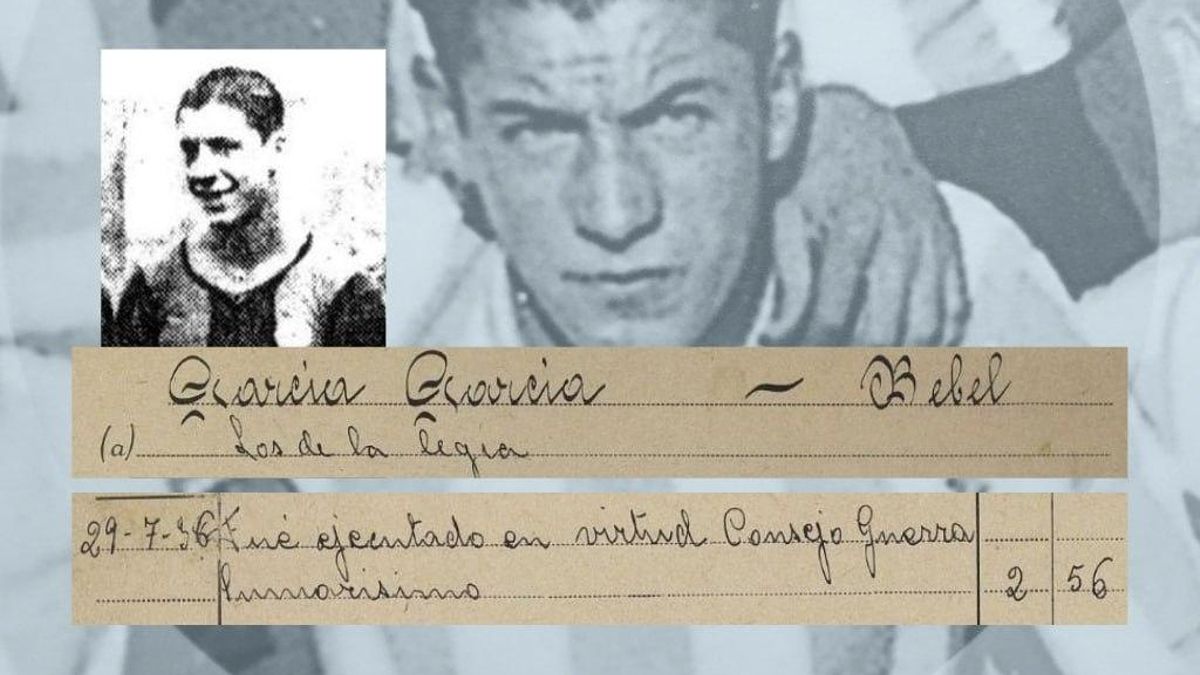 García García - Bebel
(a) Los de la legia
29-7-36 Fué ejecutado en virtud Consejo Guerra
Sumarisimo 2 56